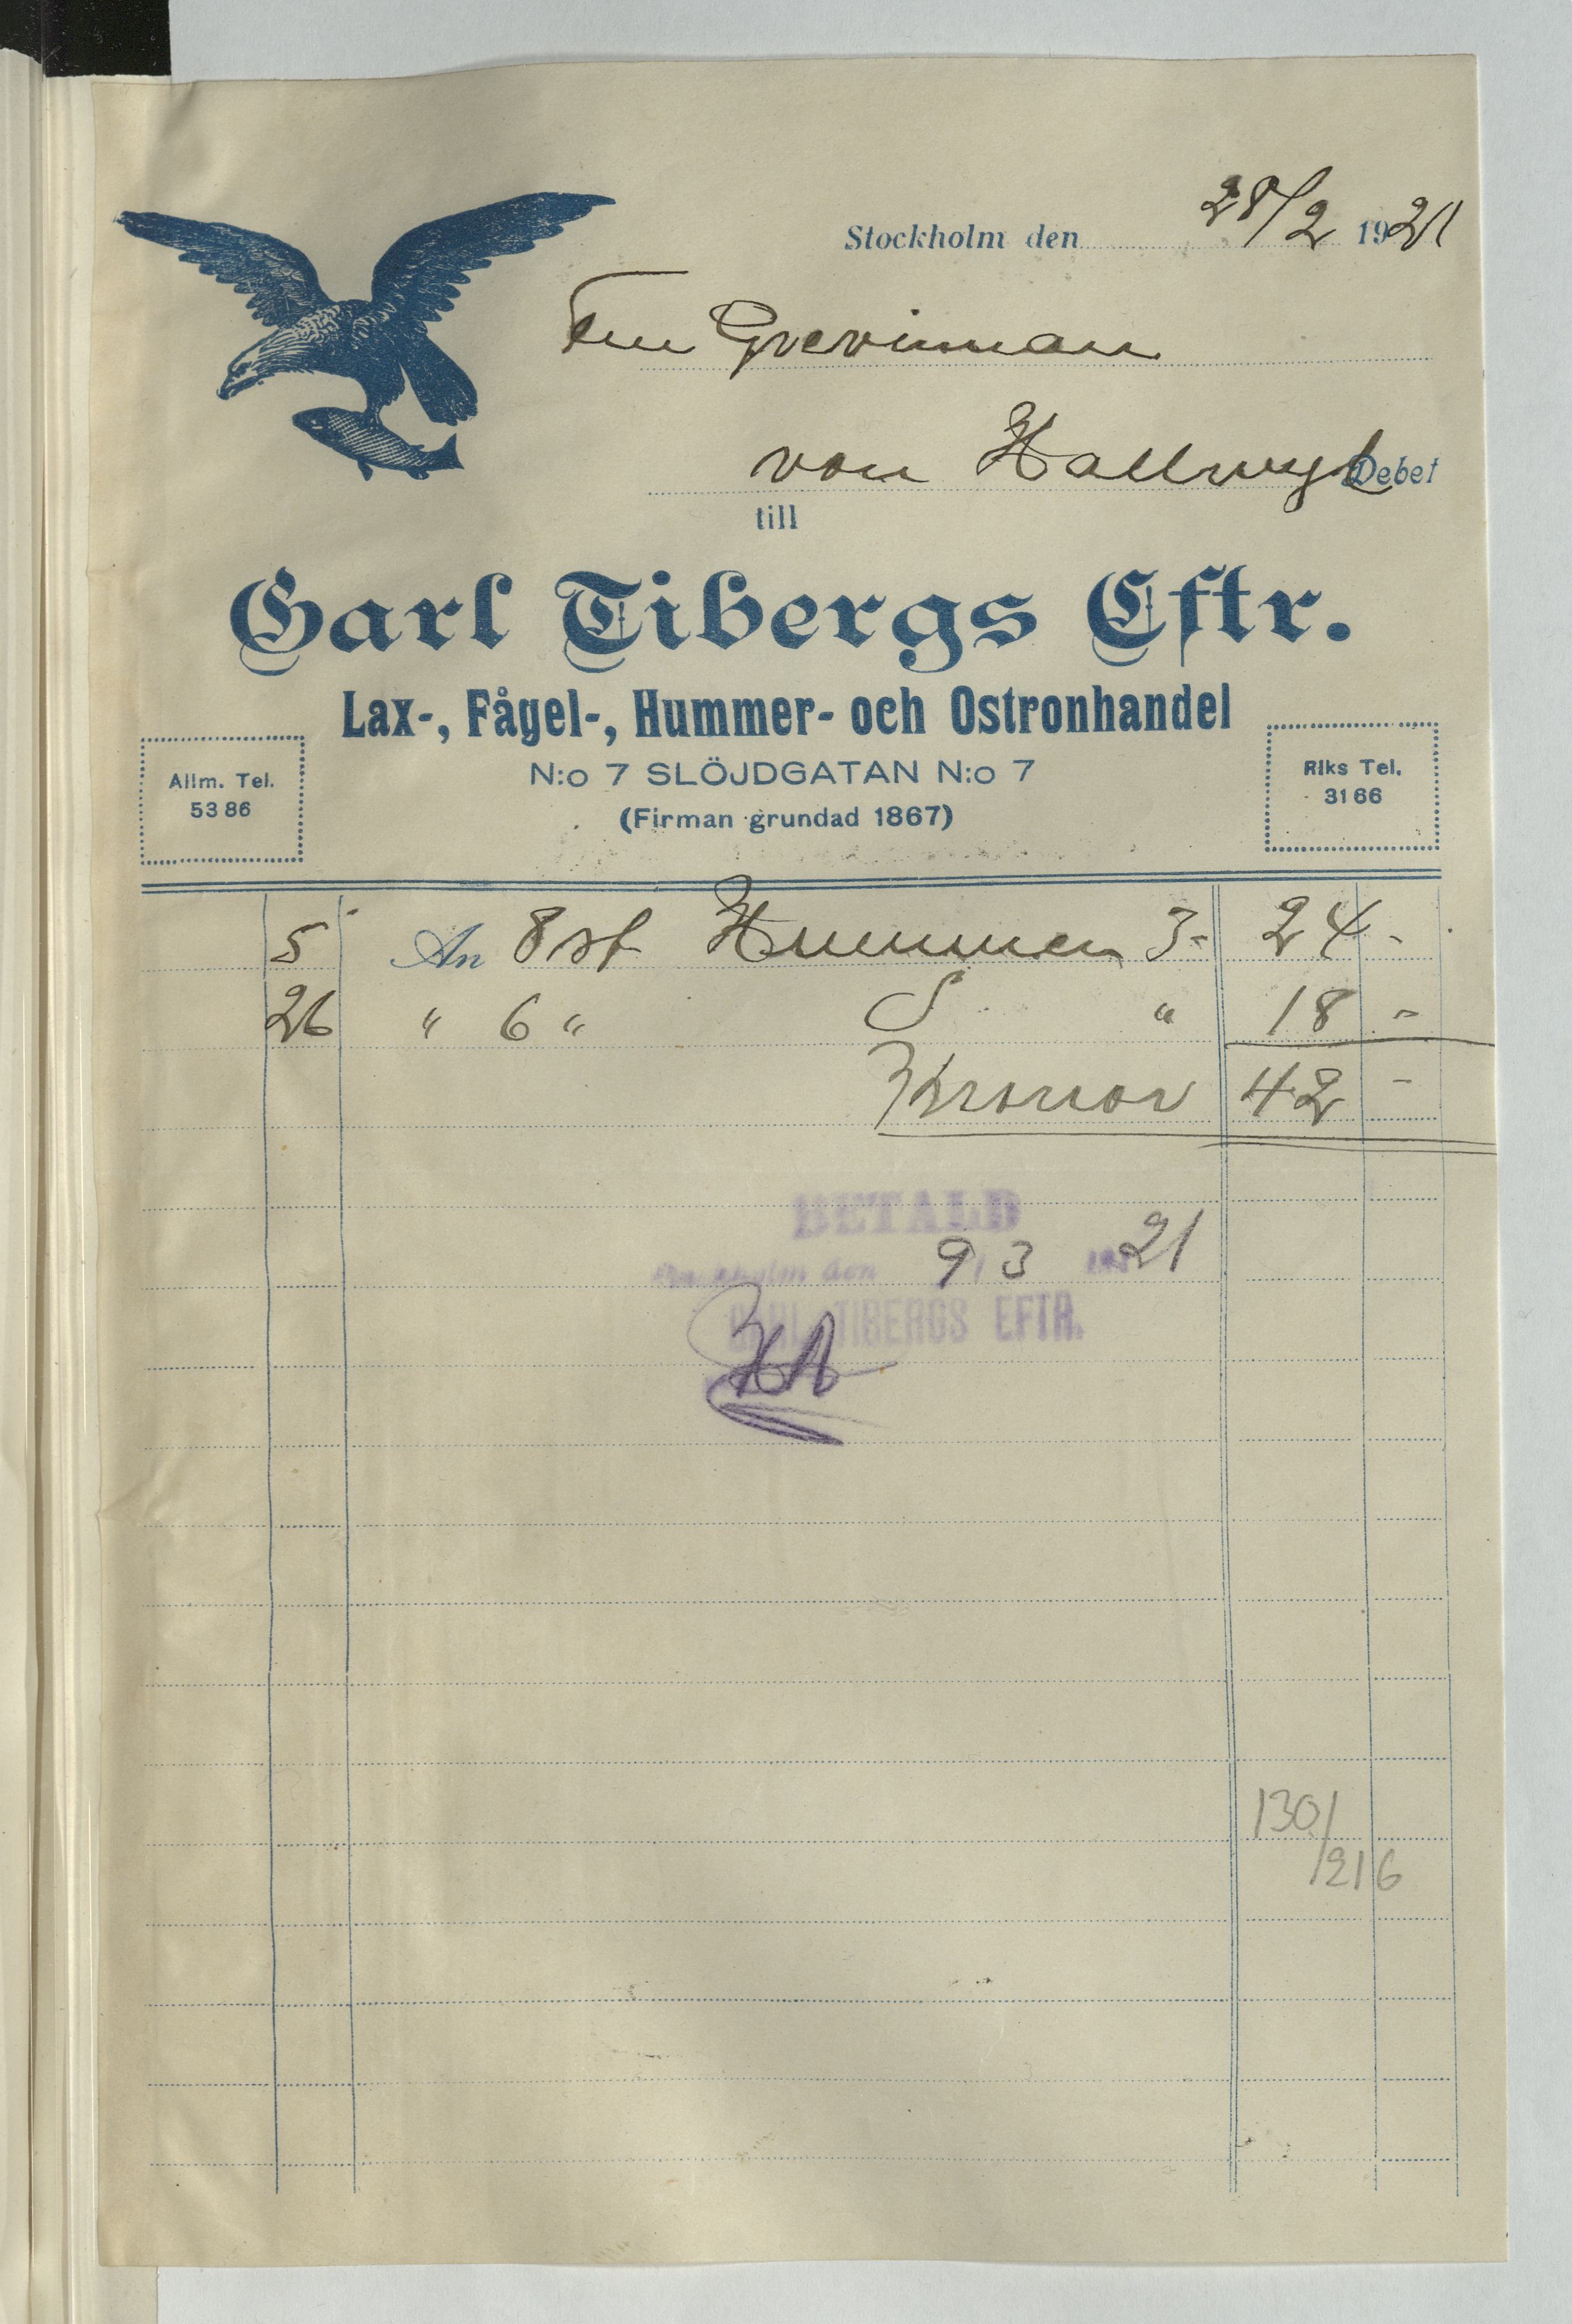 Stockholm den 28/2 1921
Fru Grevinnan
von Hallwyl Debet
till
Carl Tibergs Eftr.
Lax-, Fågel-, Hummer- och Ostronhandel
Allm. Tel.
53 86
N:o 7 SLÖJDGATAN N:o 7
(Firman grundad 1867)
Riks Tel.
31 66
5 An 8 st Hummer 3- 24 -
26 " 6 " " 18 -
Kronor 42 -
BETALD
Stockholm den 9/3 1921
CARL TIBERGS EFTR.
130/
216